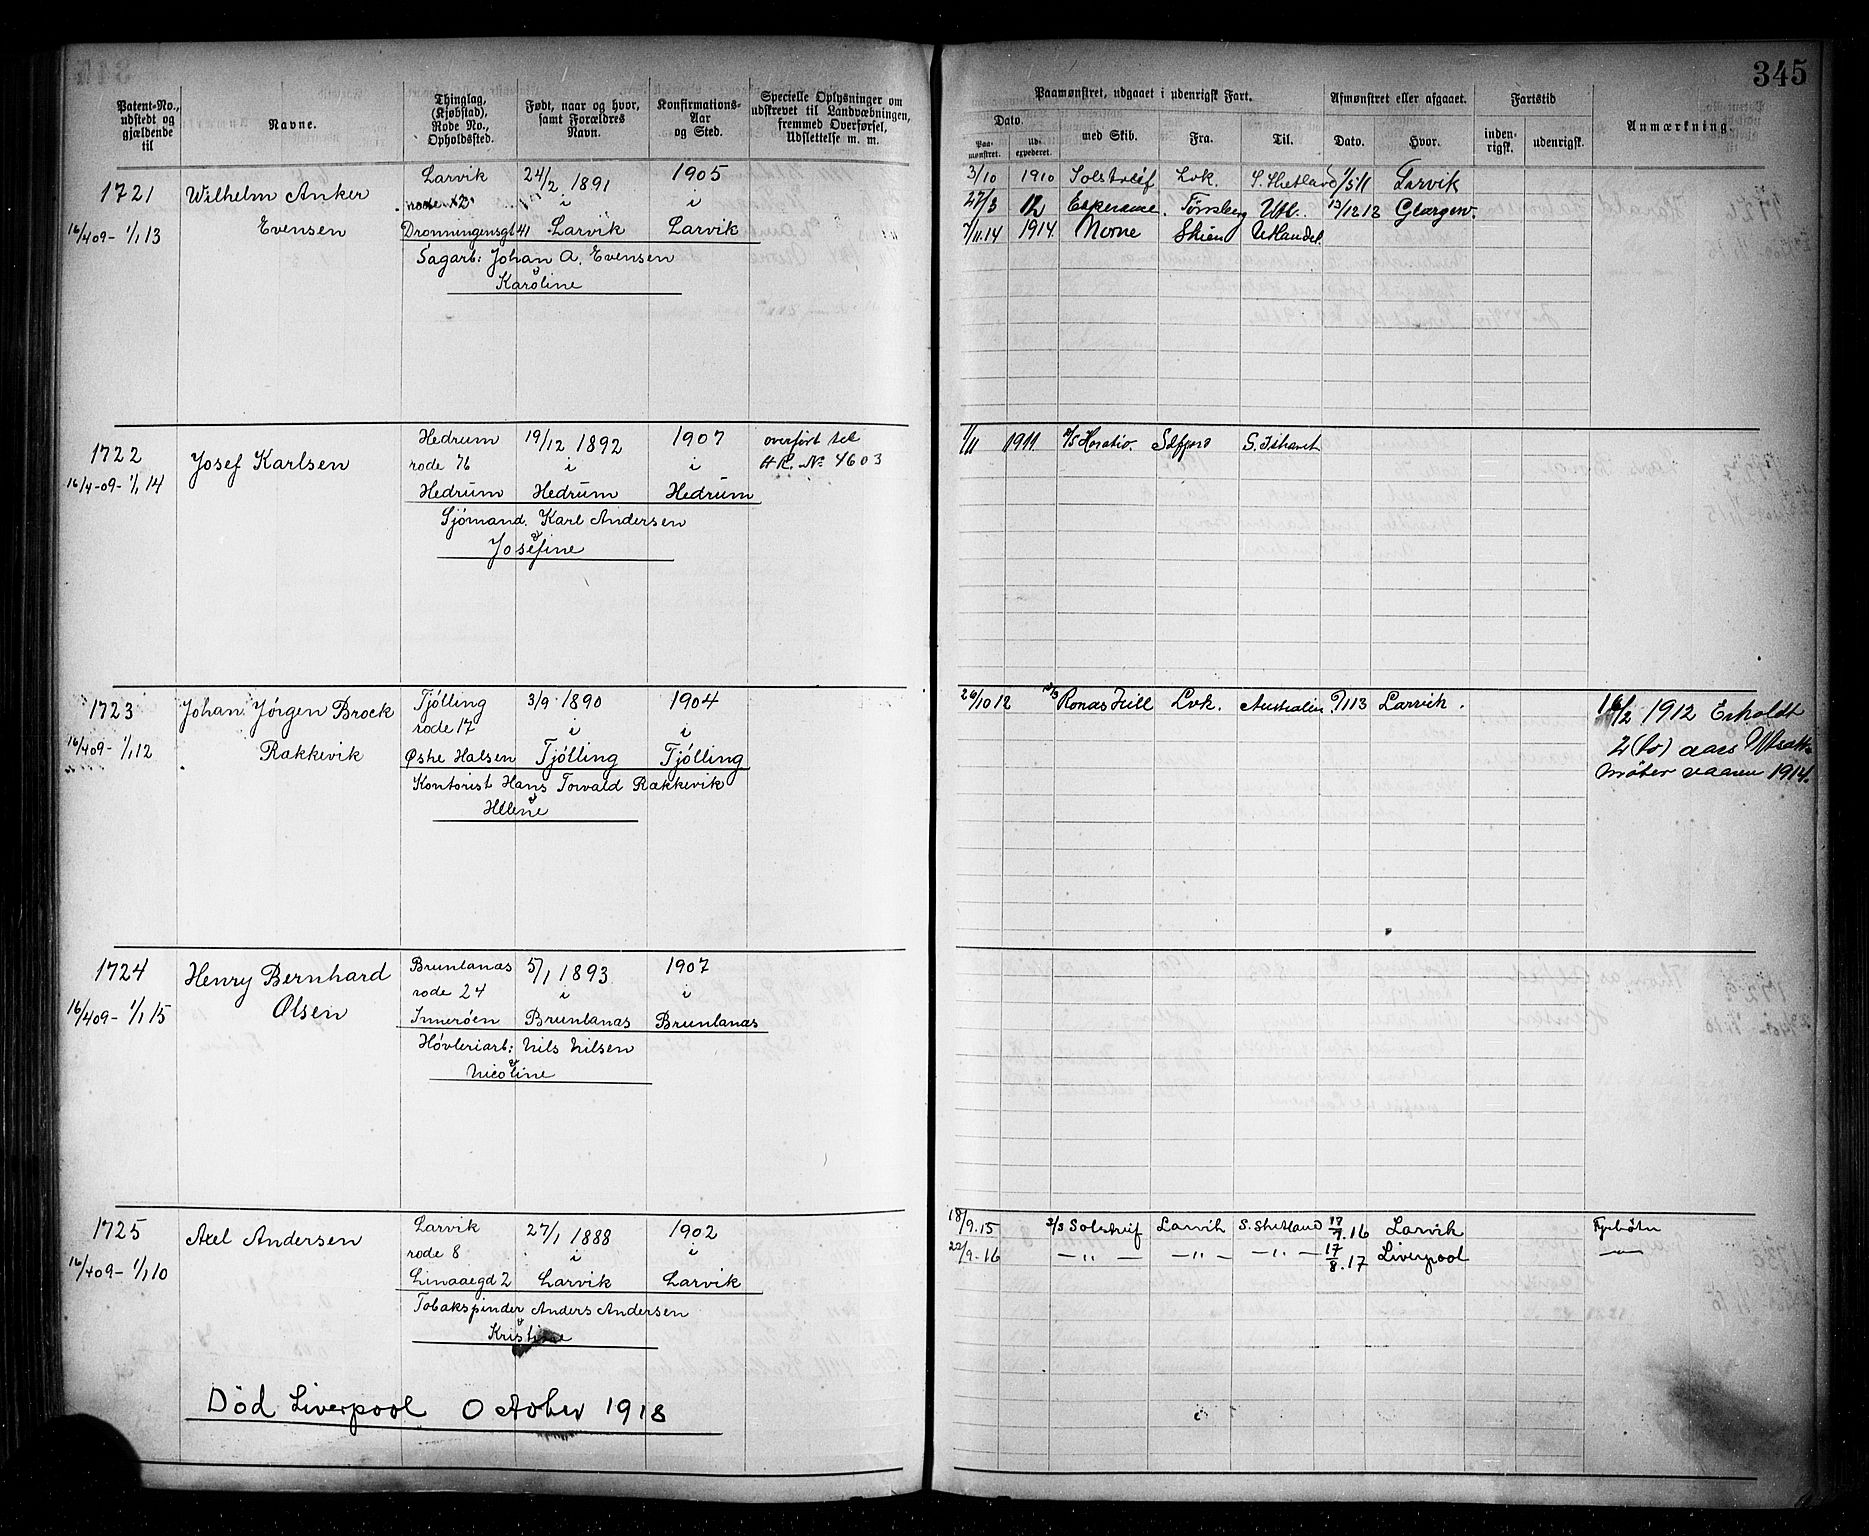 345
Patent-No., udstedt og gjældende til
Navne.
Thinglag, (Kjøbstad), Rode No., Opholdssted.
Født, naar og hvor, samt Forældres Navn.
Konfirmations-Aar og Sted.
Specielle Oplysninger om udskrevet til Landvæbningen, fremmed Overførsel, Udslettelse m. m.
Paamønstret, udgaaet i udenrigsk Fart.
Afmønstret eller afgaaet.
Fartstid
Anmærkning.
Dato
Paa-mønstret.
Ud-expederet.
med Skib.
Fra.
Til.
Dato.
Hvor.
inden-rigsk.
udenrigsk.
1721 Wilhelm Anker Larvik 24/2 1891 1905
rode i i
16/4 09 - 1/1 13 Evensen Dronningensgt 41 Larvik Larvik
Sagarb: Johan A. Evensen
&
Karoline
3/10 1910 Lvk. S. Shetland 1/5 11 Larvik
27/3 12 Esperance. Tønsberg Utl. 13/12 13
7/11.14 1914 Norne Skien Utlandet.
1722 Josef Karlsen Hedrum 19/12 1892 1907 overført til
rode 76 i i H R. No 4603
16/4-09- 1/1 14 Hedrum Hedrum Hedrum
Sjømand. Karl Andersen
&
Josefine
1/11 1911 Horatio. S. Ishavet
1723 Johan Jørgen Brock Tjølling 3/9 1890 1904
rode 17 i i
16/4 09 - 1/1 12 Rakkevik Østre Halsen Tjølling Tjølling
Kontorist Hans Torvald Rakkevik
&
Helene
26/10 12 Lvk. Australien 7/1 13 Larvik.
16/2 1912 Erholdt
2 (to) aars Utsætt.
møter vaaren 1914.
1724 Henry Bernhard Brunlanæs 5/1 1893 1907
rode 24 i i
16/4 09 - 1/1 15 Olsen Innerøen Brunlanæs Brunlanæs
Høvleriarb: Nils Nilsen
&
Nicoline
1725 Axel Andersen Larvik 27/1 1888 1902
rode 8 i i
16/4 09 - 1/1 10 Linaaegd 2 Larvik Larvik
Tobakspinder Anders Andersen
&
Kristine
Død Liverpool October 1918
18/9.15 Larvik S. Shetland 17/7.16 Larvik Fyrbøter
22/9.16 — „ — — „ — — „ — 17/8.17 Liverpool — „ —